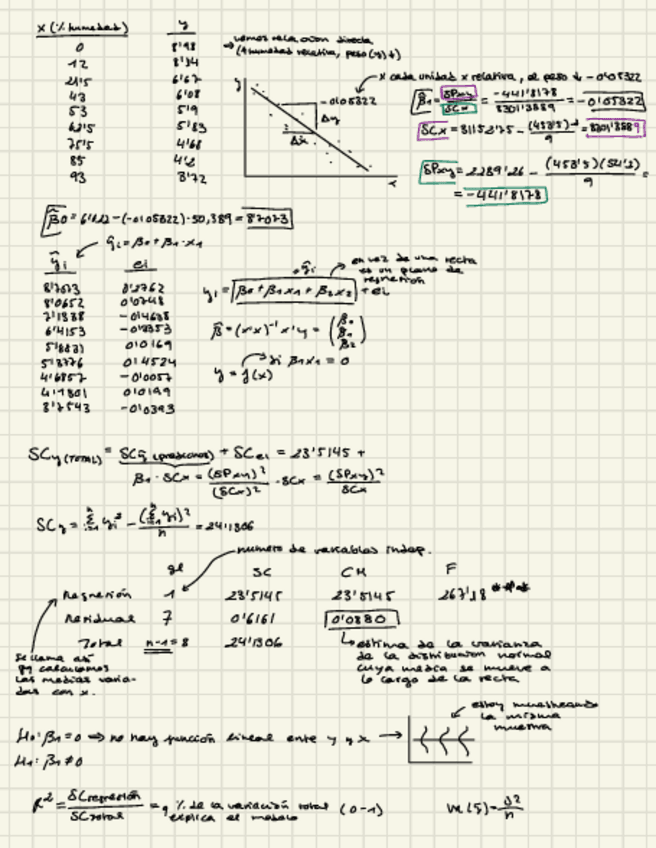 x (% humedad) y
0 8'98
12 8'14
29'5 6'67
43 6'08
53 5'9
62'5 5'83
75'5 4'68
85 4'2
93 3'72
→ vemos relación directa
(↑ humedad relativa, peso (y) ↓)
x cada unidad x relativa, el peso ↓ -0'05322
y
-0'05322
Δy
Δx
x
β̂1 = SPxy / SCx = -441'8178 / 8301'3889 = -0'05322
SCx = 31152'75 - (453'5)² / 9 = 8301'3889
SPxy = 2289'26 - (453'5)(54'2) / 9 =
= -441'8178
β̂0 = 6'022 - (-0'05322)·50,389 = 8'7073
ŷi = β0 + β1·x1
ŷi ei
8'7073 0'2762
8'0652 0'0748
7'1388 -0'4688
6'4153
5'8831 0'0169
5'3776 0'4524
4'6857 -0'0057
4'1801 0'0199
3'7543 -0'0393
ŷi
en vez de una recta
es un plano de
regresión
yi = β0 + β1x1 + β2x2 + ei
β̂ = (x'x)⁻¹ x'y = (β0 β1 β2)
si β1x1 = 0
y = f(x)
SCy (TOTAL) = SCŷ + SCei = 23'5145 +
β1 · SCx = (SPxy)² / (SCx)² · SCx = (SPxy)² / SCx
SCy = Σ yi² - (Σ yi)² / n = 24'1306
numero de variables indep.
gl SC CM F
Regresión 1 23'5145 23'5145 267'18 ***
Residual 7 0'6161 0'0880
Total n-1=8 24'1306
Se llama así
pq calculamos
las medias varia-
das con x.
estima de la varianza
de la distribución normal
cuya media se mueve a
lo largo de la recta
estoy muestreando
la misma
muestra
H0: β1 = 0 ⇒ no hay función lineal ente y y x →
H1: β1 ≠ 0
R² = SCregresión / SCtotal = % de la variación total (0-1)
explica el modelo